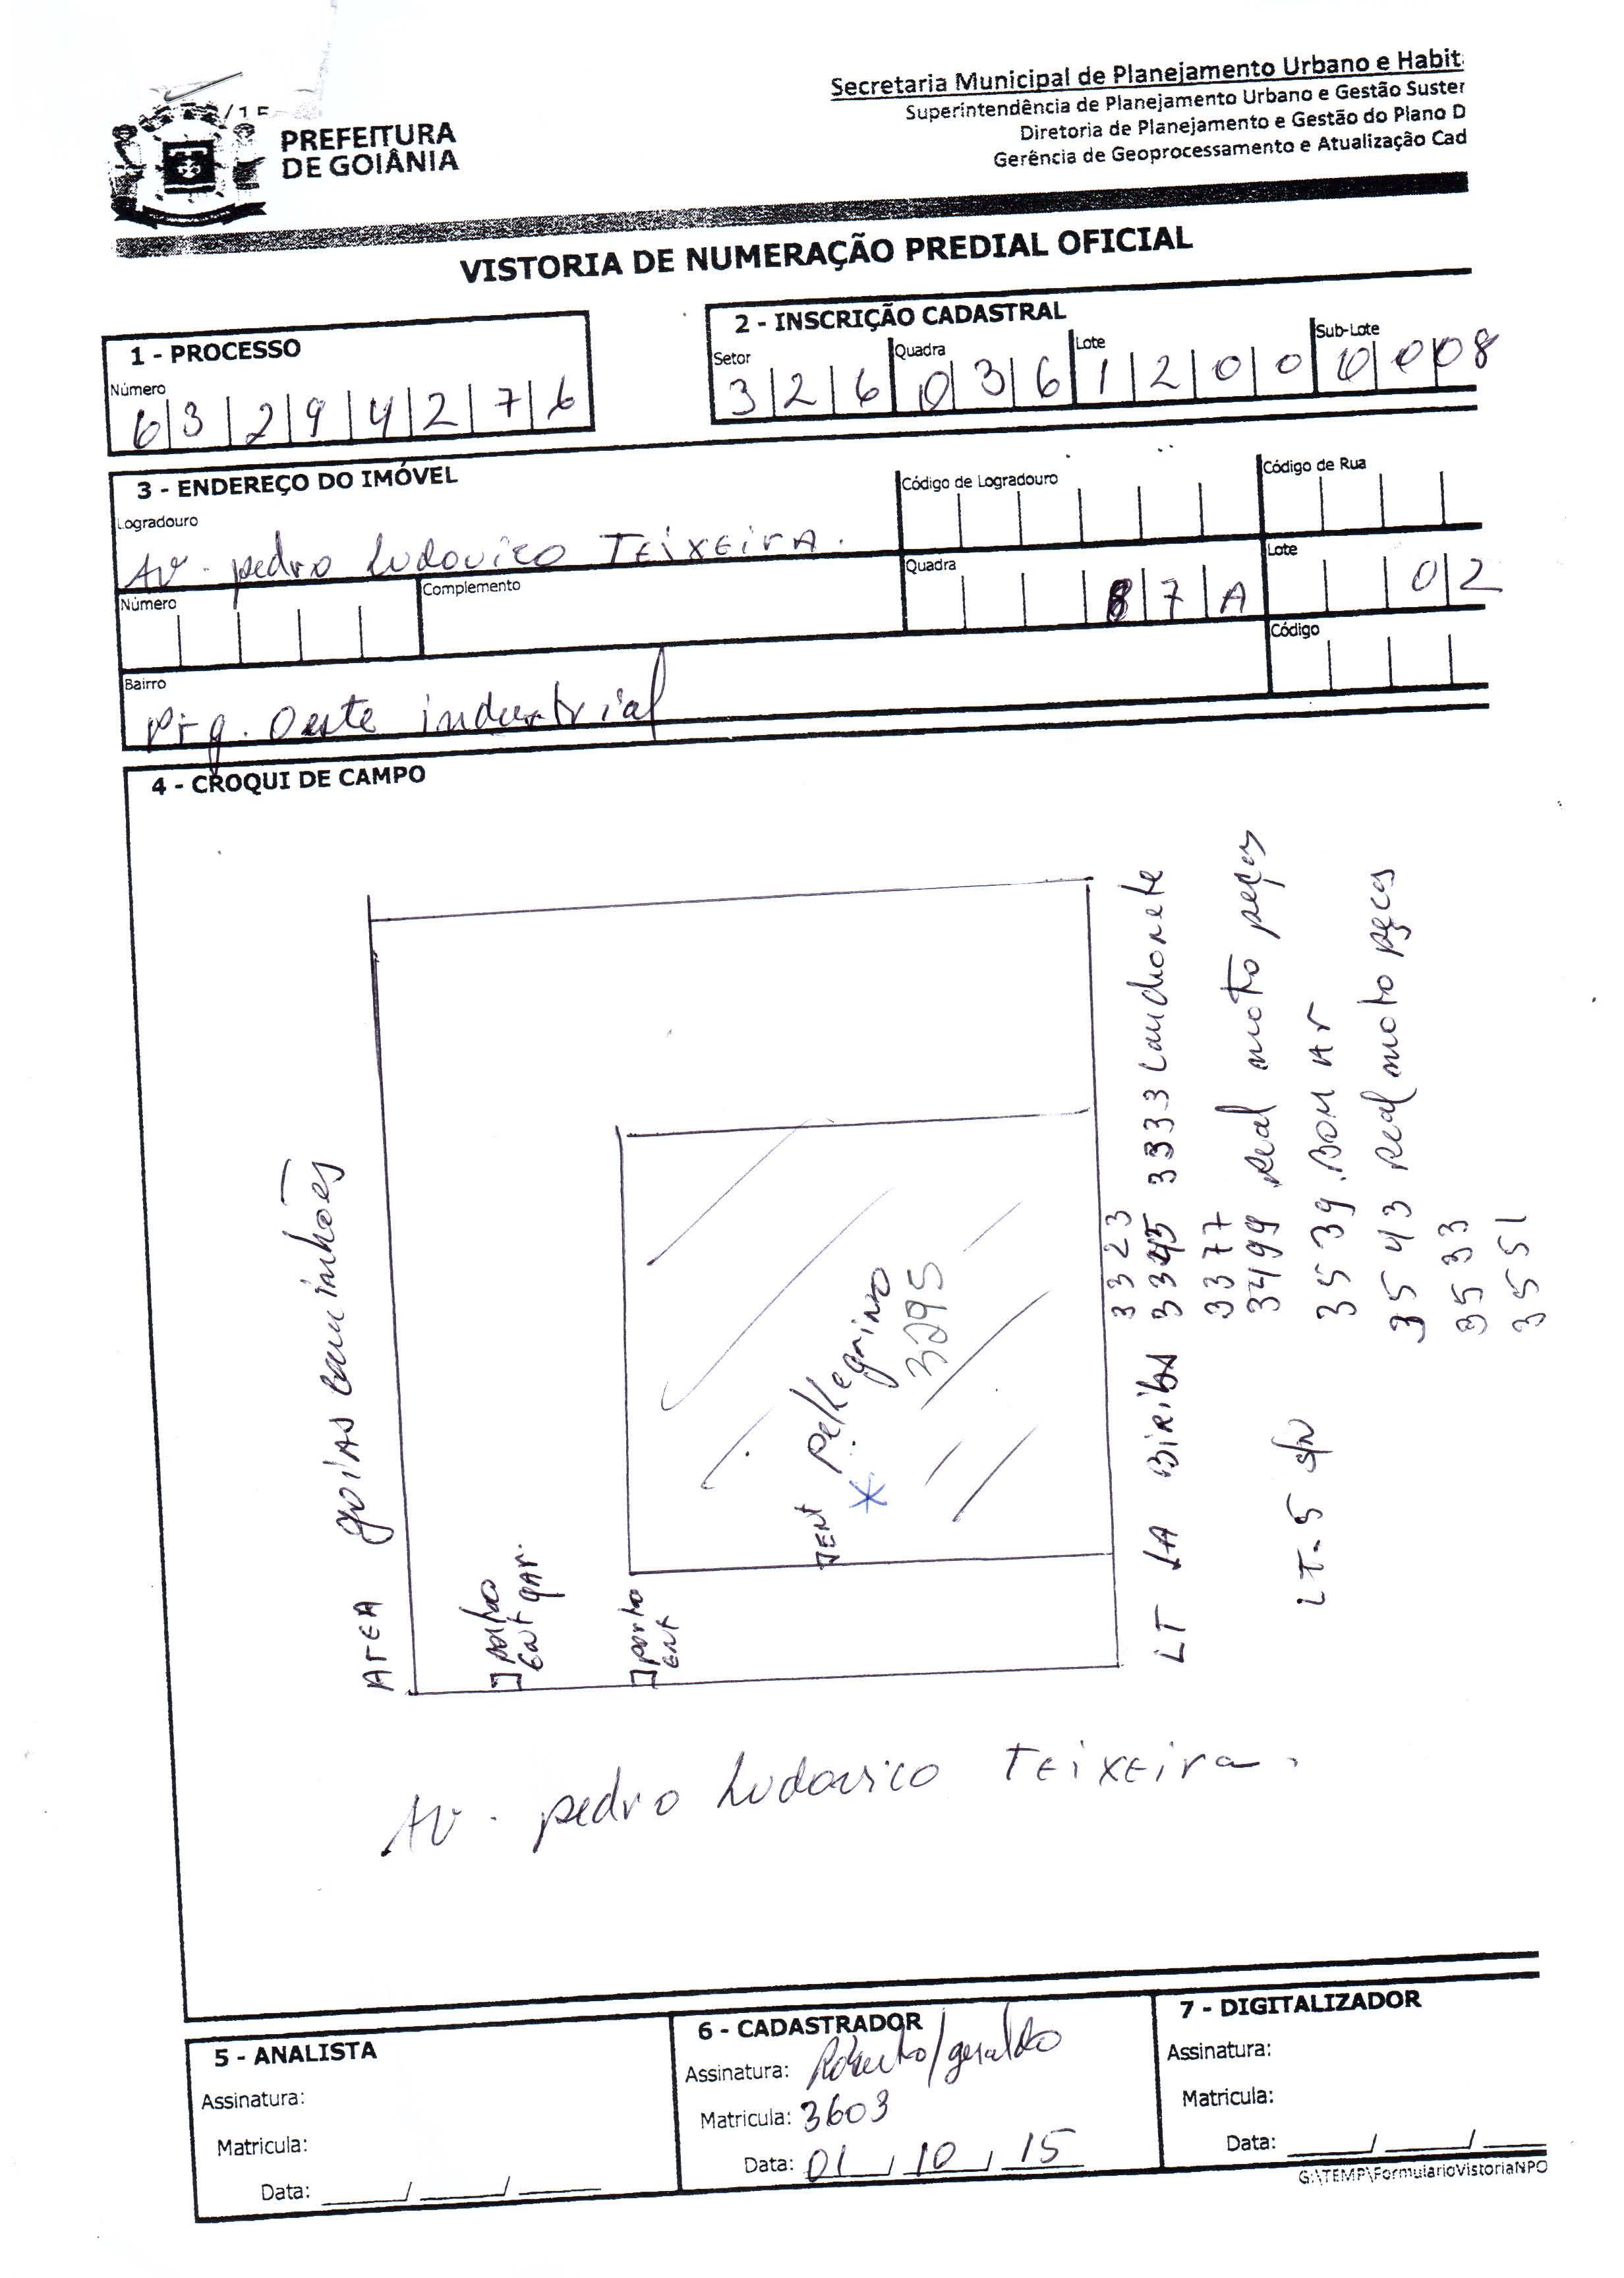 Secretaria Municipal de Planejamento Urbano e Habit
Superintendência de Planejamento Urbano e Gestão Suster
Diretoria de Planejamento e Gestão do Plano D
Gerência de Geoprocessamento e Atualização Cad
PREFEITURA
DE GOIÂNIA
VISTORIA DE NUMERAÇÃO PREDIAL OFICIAL
1 - PROCESSO
Número
6 3 2 9 4 2 7 6
2 - INSCRIÇÃO CADASTRAL
Setor Quadra Lote Sub-Lote
3 2 6 0 3 6 1 2 0 0 0 0 0 8
3 - ENDEREÇO DO IMÓVEL
Logradouro Código de Logradouro Código de Rua
AV. pedro Ludovico TEiXEirA.
Número Complemento Quadra Lote
8 7 A 0 2
Bairro Código
Prq. Oeste industrial
4 - CROQUI DE CAMPO
ArEA goiAs caminhões
portão
Ent gAr.
portão
ent
ENT pellegrino
3295
LT 1A BiRiBA 3345 3333 Lanchonete
3323
3377
3499 Real moto peças
LT-5 s/n 3539 BOM Ar
3543 Real moto peças
3533
3551
AV. pedro Ludovico TEiXEira.
5 - ANALISTA
Assinatura:
Matricula:
Data: ____/____/____
6 - CADASTRADOR
Assinatura: Roberto/geraldo
Matricula: 3603
Data: 01/10/15
7 - DIGITALIZADOR
Assinatura:
Matricula:
Data: ____/____/____
G:\TEMP\FormularioVistoriaNPO